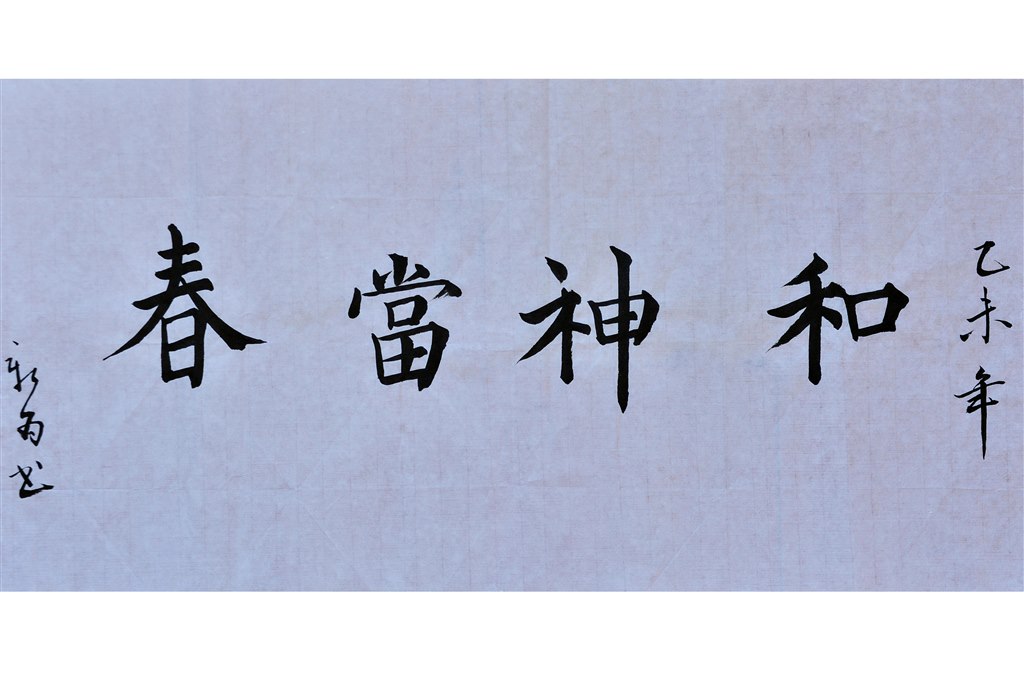 乙未年
和神當春
新為书